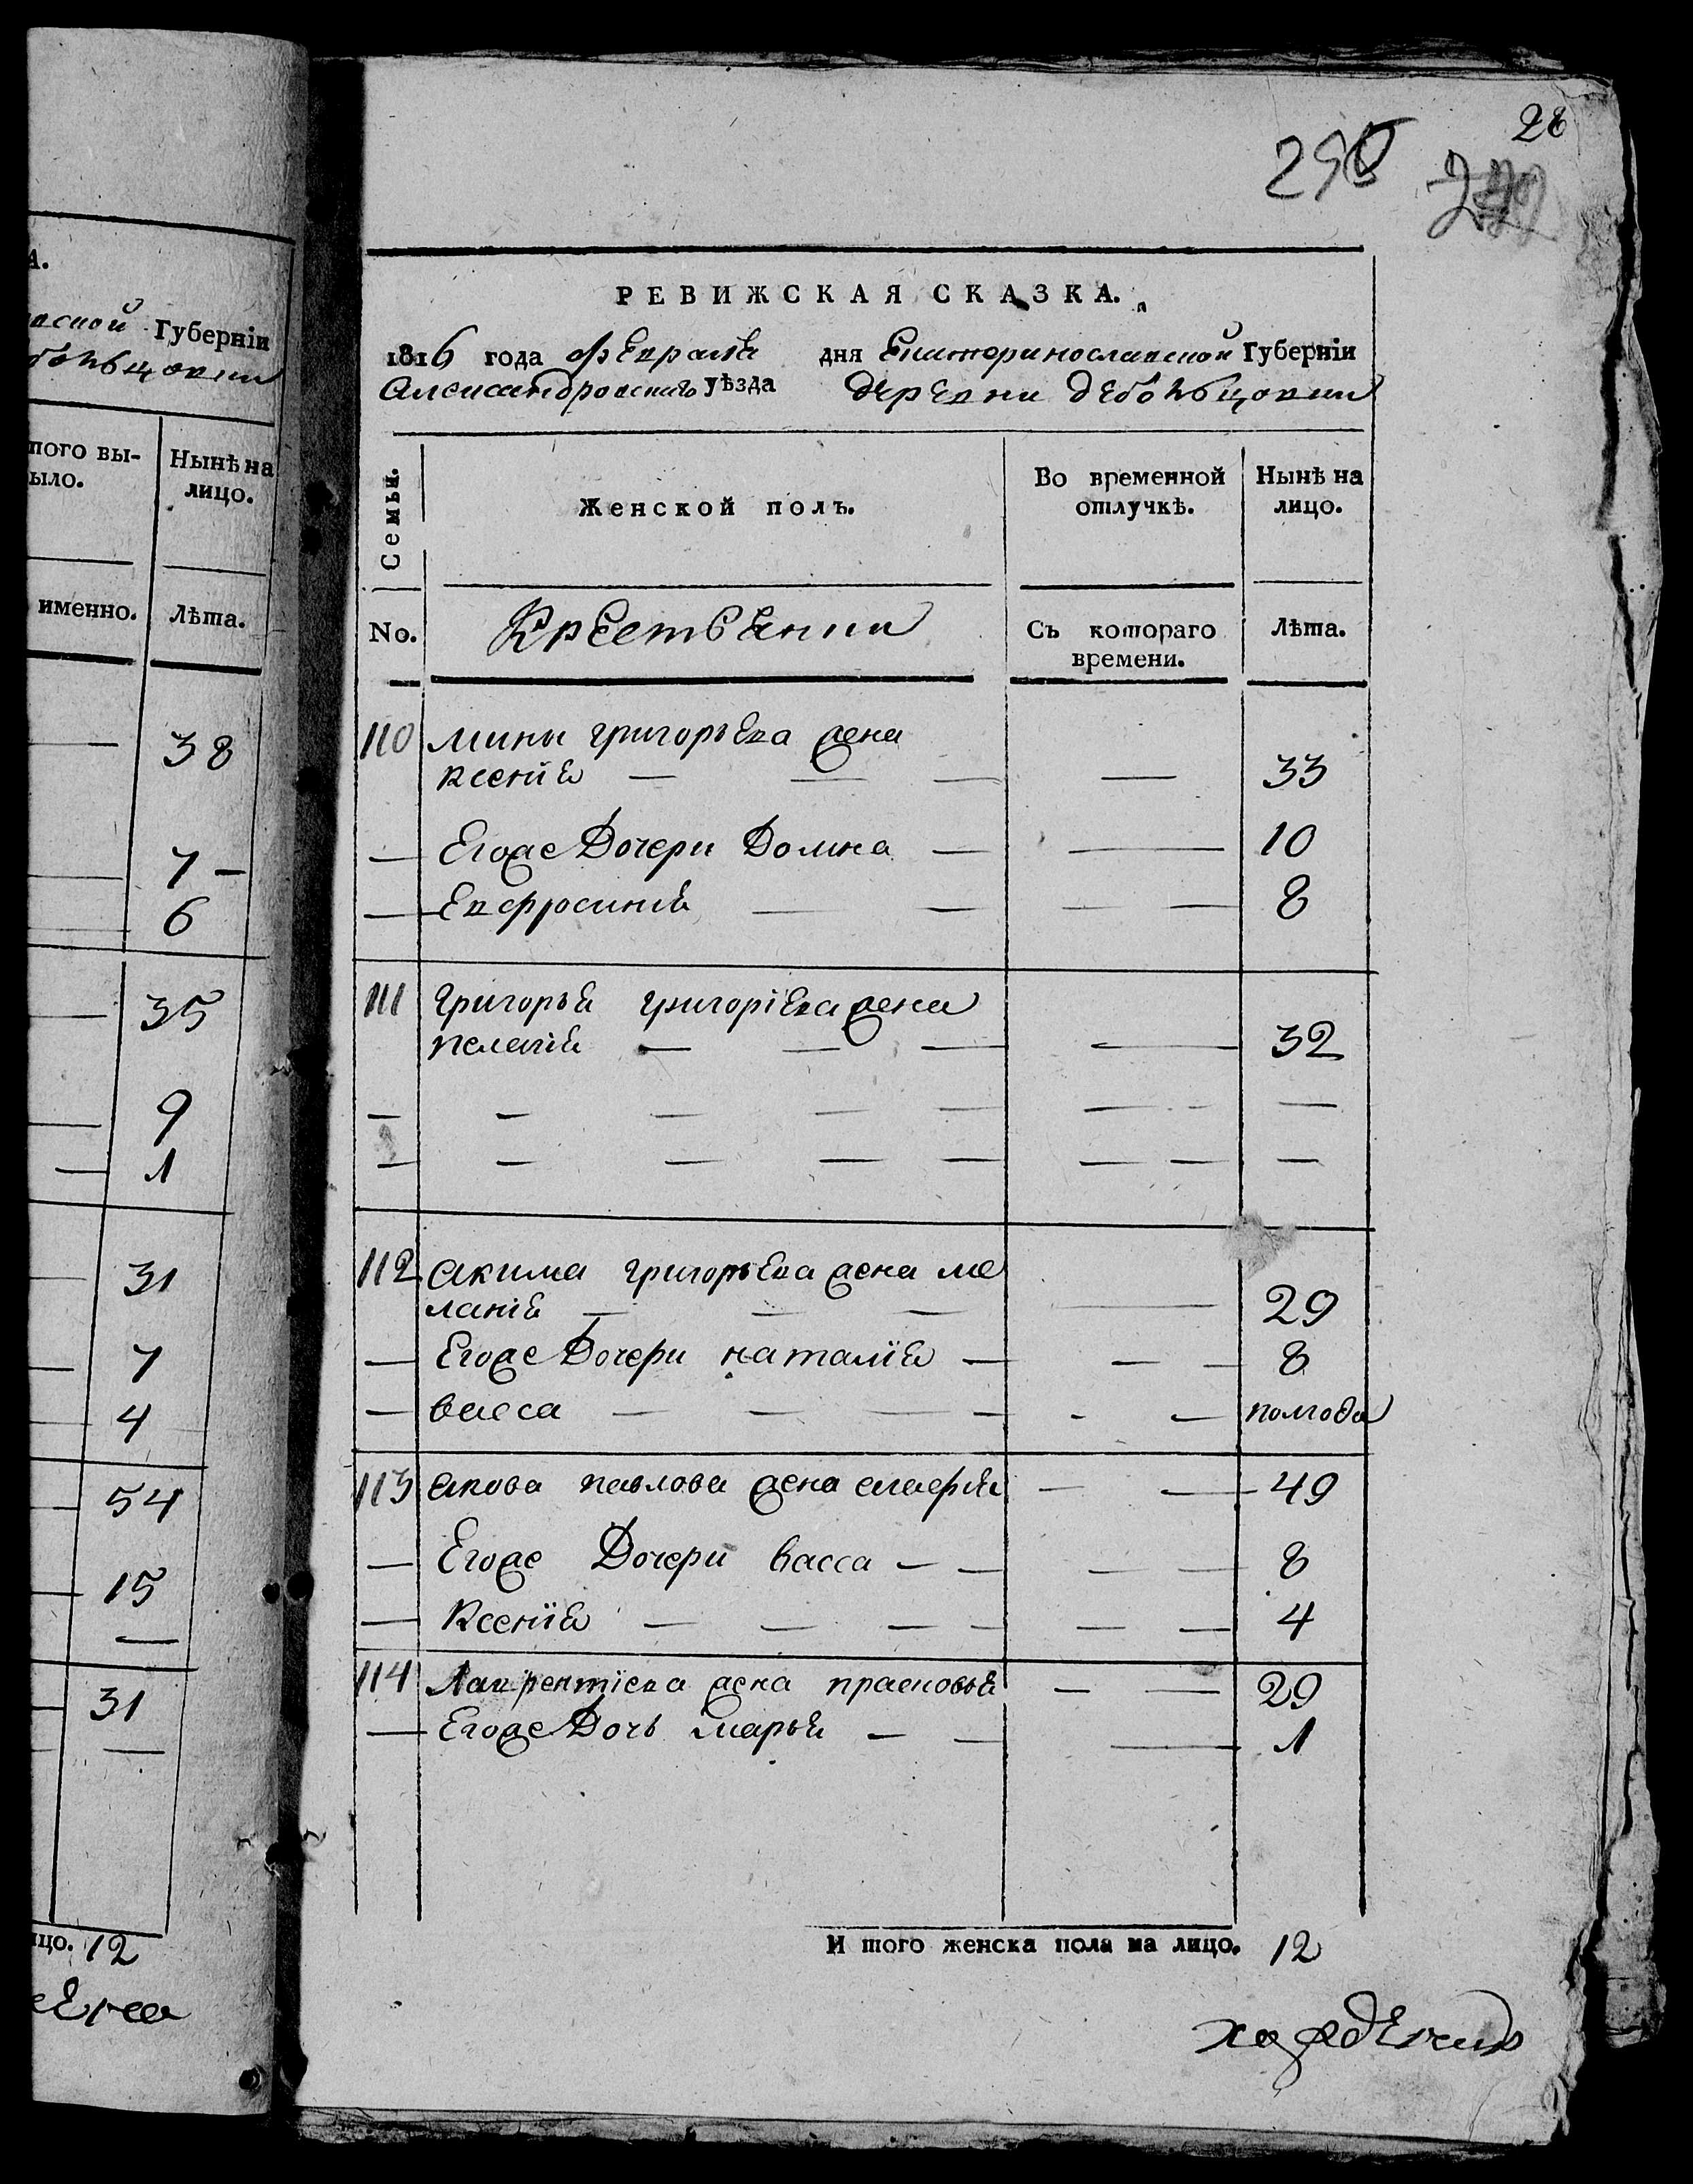 28
295
А.
Губерніи
РЕВИЖСКАЯ СКАЗКА.
1816 года февраля дня Екатеринославской Губерніи
Александровскаго уѣзда деревни
Семьи.
Женской полъ.
Во временной отлучкѣ.
Нынѣ на лицо.
No.
Крестьянки
Съ котораго времени.
Лѣта.
110 Мины григорьева жена
ксенія — — — — 33
— Егоже Дочери Домна — — 10
— Евфросинія — — — — 8
111 григорья григоріева жена
пелагія — — — — 32
— — — — — — — —
— — — — — — — —
112 акима григорьева жена ме
ланія — — — — 29
— Егоже Дочери наталія — — — 8
— васса — — — — - — полгода
113 якова павлова жена агафія — — 49
— Егоже Дочери васса — — — — 8
— Ксенія — — — — — — 4
114 Лаврентіева жена прасковья — — 29
— Егоже Дочь марья — — — 1
И того женска пола на лицо. 12
ного вы-
ыло.
Нынѣ на
лицо.
именно.
Лѣта.
— 38
— 7 —
— 6
— 35
— 9
— 1
— 31
— 7
— 4
— 54
— 15
—
— 31
— —
ицо. 12